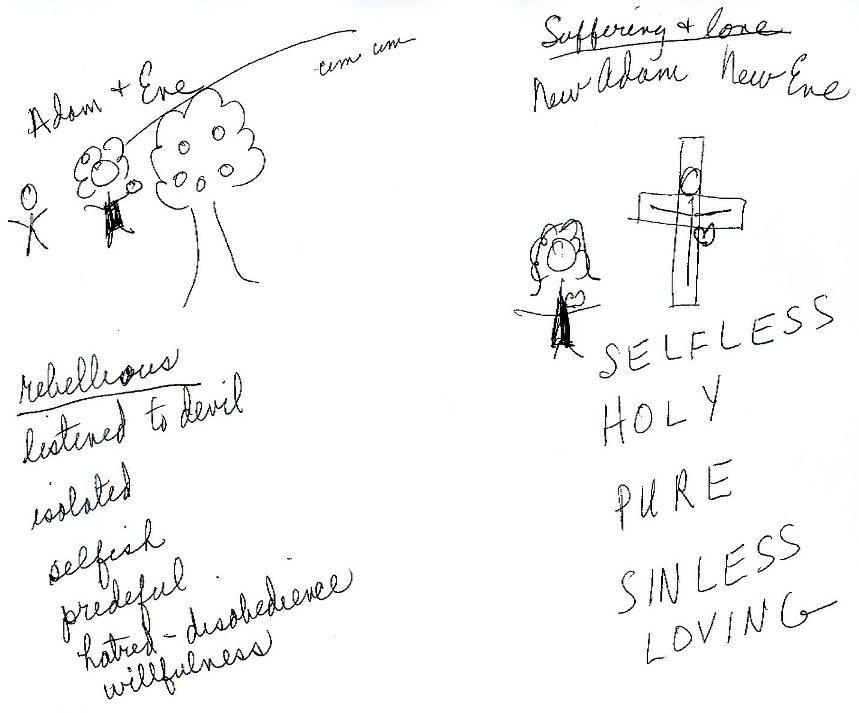 Adam + Eve
um um
rebellious
listened to devil
isolated
selfish
predeful
hatred - disobedience
willfulness
Suffering + love
New Adam New Eve
SELFLESS
HOLY
PURE
SINLESS
LOVING